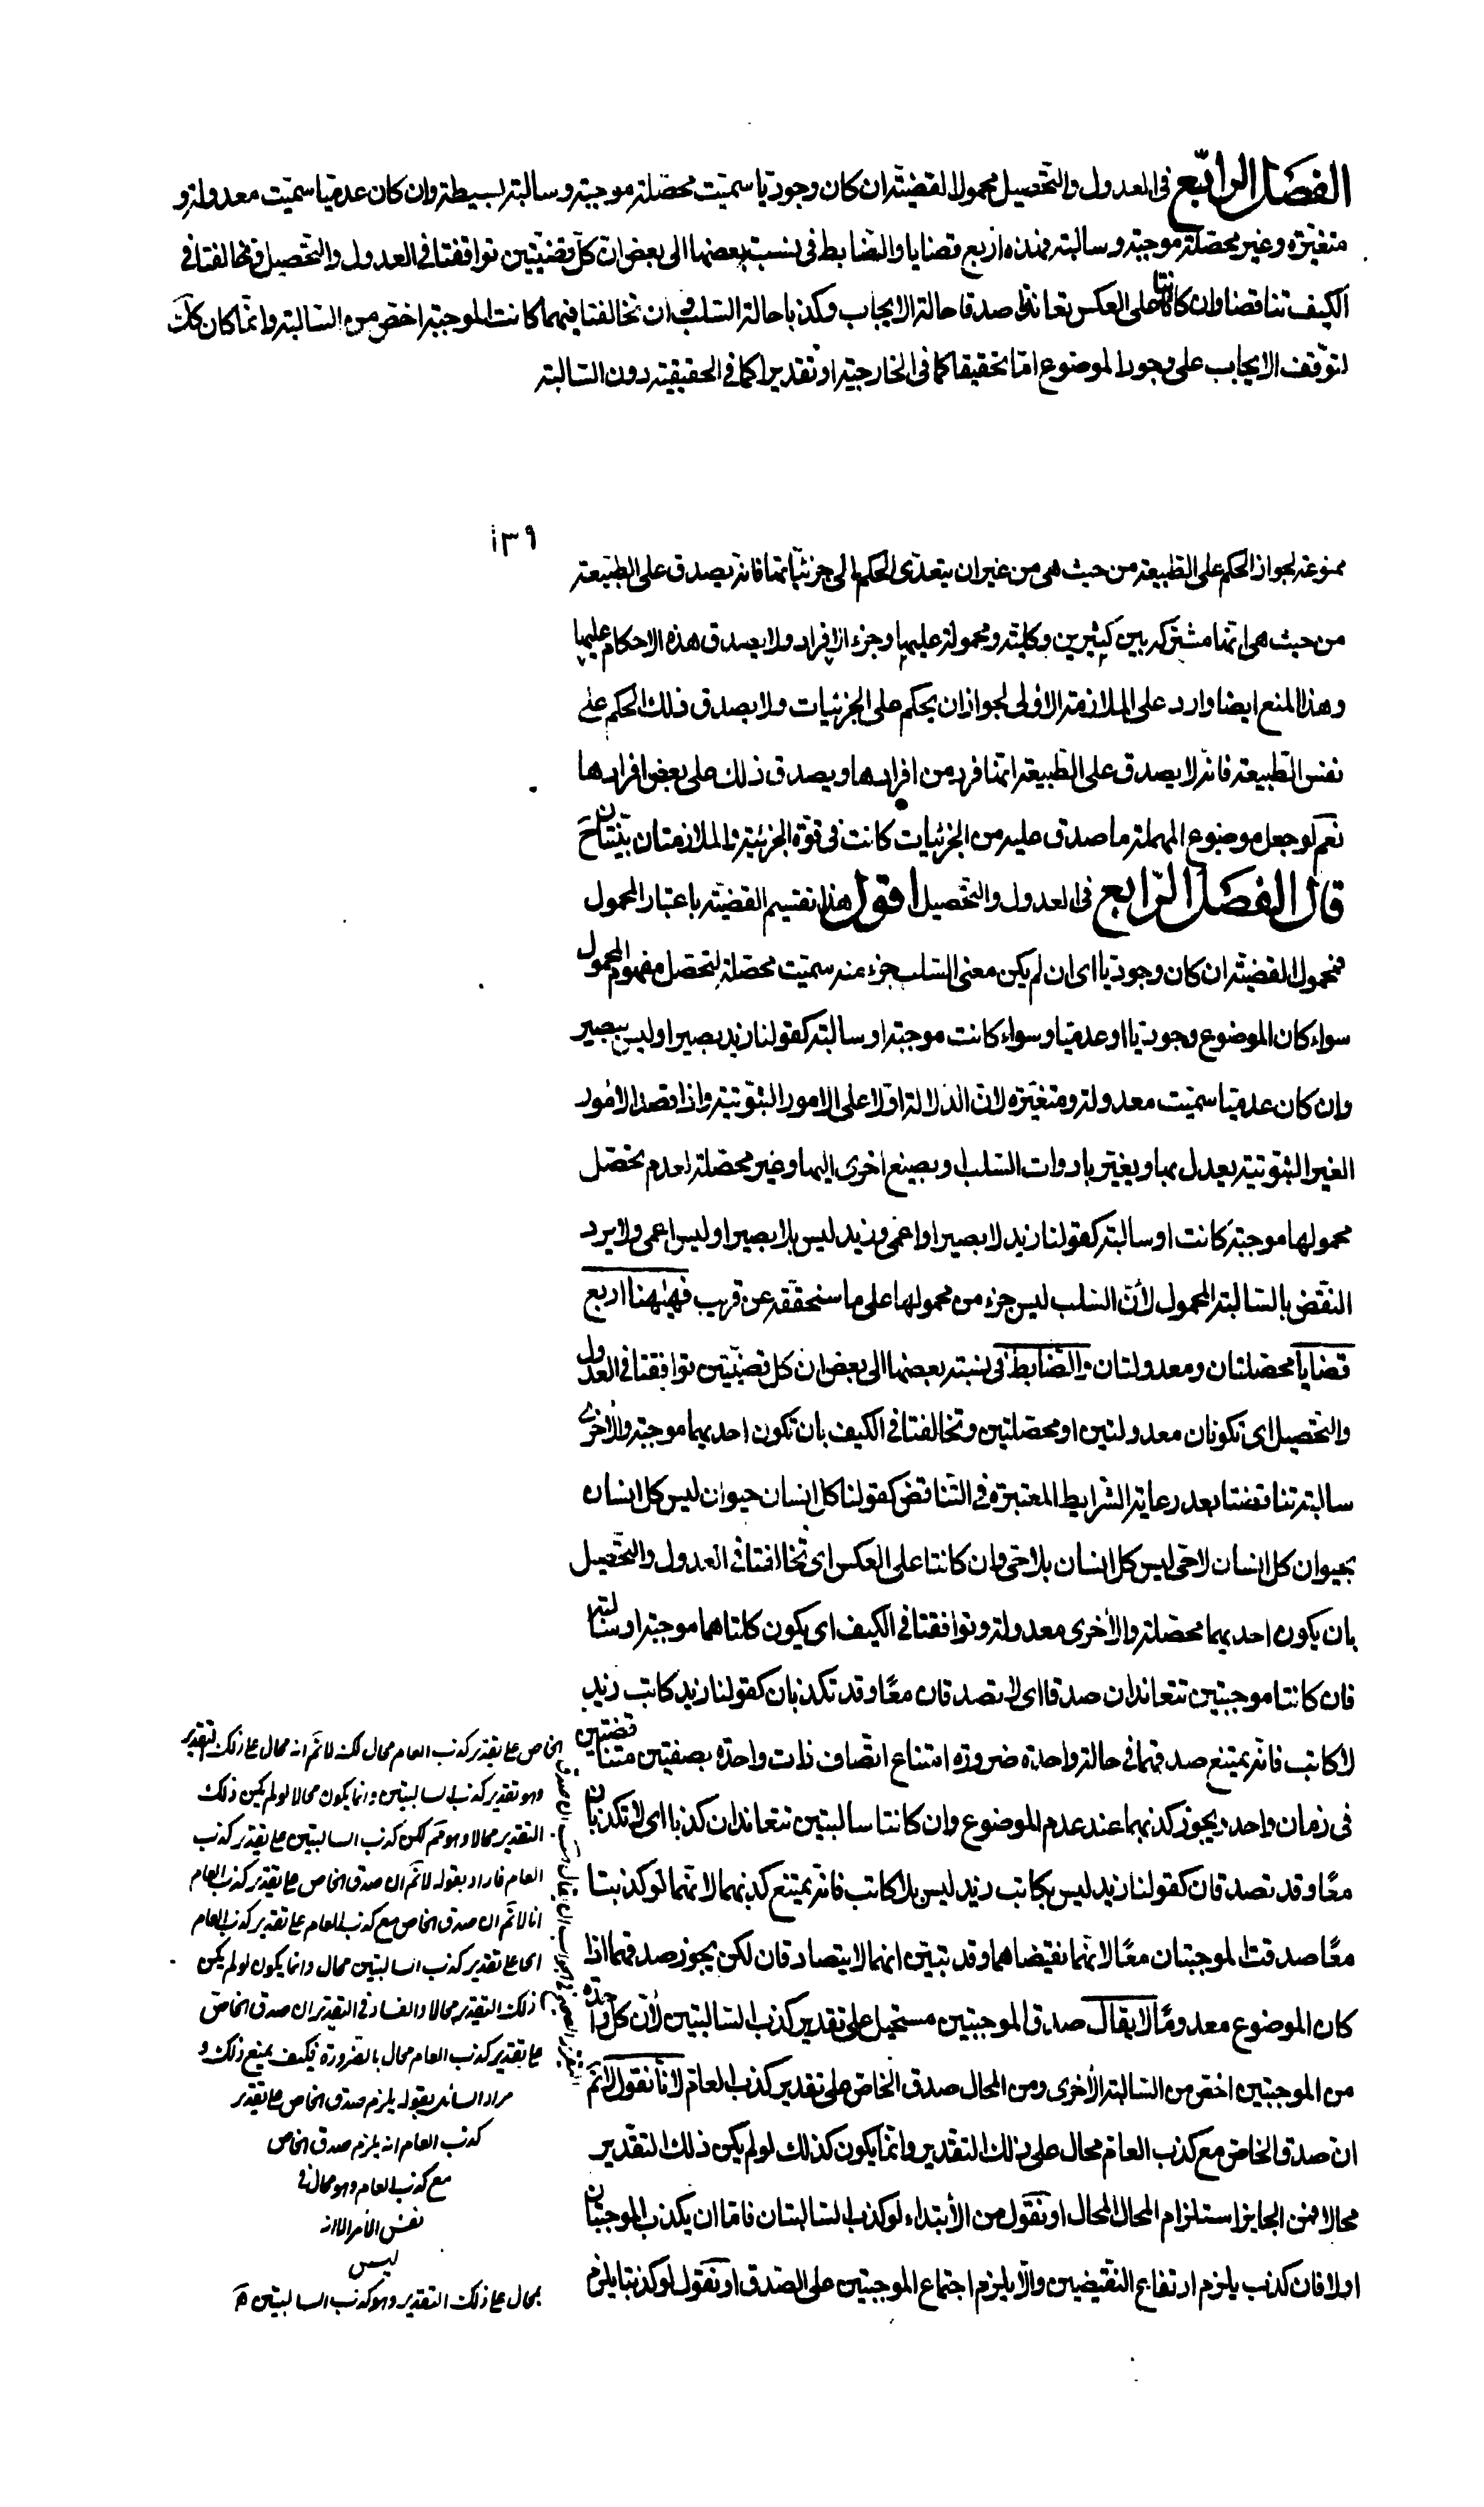 الفصل الرابع في العدول والتحصيل محمول القضية ان كان وجوديا سميت محصلة موجبة وسالبة بسيطة وان كان عدميا سميت معدولة و
متغيرة وغير محصلة موجبة وسالبة فهذه اربع قضايا والضابط في نسبة بعضها الى بعض ان كل قضيتين توافقتا في العدول والتحصيل وتخالفتا في
الكيف تناقضتا وان كانتا على العكس تعاندتا صدقا حالة الايجاب وكذبا حالة السلب وان تخالفتا فيهما كانت الموجبة اخص من السالبة وانما كان كك
لتوقف الايجاب على وجود الموضوع اما تحقيقا كما في الخارجية او تقديرا كما في الحقيقية دون السالبة
١٣٩
ممنوعة لجواز الحكم على الطبيعة من حيث هي من غير ان يتعدى الحكم الى جزئياتها فانه يصدق على الطبيعة
من حيث هي انها مشتركة بين كثيرين وكلية ومحمولة عليها وجزء الافراد ولا يصدق هذه الاحكام عليها
وهذا المنع ايضا وارد على الملازمة الاولى لجواز ان يحكم على الجزئيات ولا يصدق ذلك الحكم على
نفس الطبيعة فانه لا يصدق على الطبيعة انها فرد من افرادها ويصدق ذلك على بعض افرادها
نعم لو جعل موضوع المهملة ما صدق عليه من الجزئيات كانت في قوة الجزئية والملازمتان بينتان ح
قال الفصل الرابع في العدول والتحصيل اقول هذا تقسيم القضية باعتبار المحمول
فمحمول القضية ان كان وجوديا اى ان لم يكن معنى السلب جزء منه سميت محصلة لتحصل مفهوم المحمول
سواء كان الموضوع وجوديا او عدميا وسواء كانت موجبة او سالبة كقولنا زيد بصير او ليس ببصير
وان كان عدميا سميت معدولة ومتغيرة لان الدلالة اولا على الامور الثبوتية واذا قصد الامور
الغير الثبوتية يعدل بها ويغير بادوات السلب وبصيغ اخرى اليها وغير محصلة لعدم تحصل
محمولها موجبة كانت او سالبة كقولنا زيد لا بصير او اعمى وزيد ليس بلا بصير او ليس اعمى ولا يرد
النقض بالسالبة المحمول لأن السلب ليس جزء من محمولها على ما سنحققه عن قريب فههنا اربع
قضايا محصلتان ومعدولتان والضابط في نسبة بعضها الى بعض ان كل قضيتين توافقتا في العدول
والتحصيل اى تكونان معدولتين او محصلتين وتخالفتا في الكيف بان تكون احديهما موجبة والأخرى
سالبة تناقضتا بعد رعاية الشرايط المعتبرة في التناقض كقولنا كل انسان حيوان ليس كل انسان
بحيوان كل انسان لا حى ليس كل انسان بلا حى وان كانتا على العكس اى تخالفتا في العدول والتحصيل
بان يكون احديهما محصلة والأخرى معدولة وتوافقتا في الكيف اى يكون كلتاهما موجبة او سالبة
فان كانتا موجبتين تتعاندان صدقا اى لا تصدقان معًا وقد تكذبان كقولنا زيد كاتب زيد
لا كاتب فانه يمتنع صدقهما في حالة واحدة ضرورة امتناع اتصاف ذات واحدة بصفتين متناقضتين
في زمان واحد ويجوز كذبهما عند عدم الموضوع وان كانتا سالبتين تتعاندان كذبا اى لا تكذبان
معًا وقد تصدقان كقولنا زيد ليس بكاتب زيد ليس بلا كاتب فانه يمتنع كذبهما لانهما لو كذبتا
معًا صدقت الموجبتان معًا لانهما نقيضاهما وقد تبين انهما لا يتصادقان لكن يجوز صدقهما اذا
كان الموضوع معدومًا لا يقال صدق الموجبتين مستحيل على تقدير كذب السالبتين لأن كل واحدة
من الموجبتين اخص من السالبة الأخرى ومن المحال صدق الخاص على تقدير كذب العام لأنا نقول لا نم
ان صدق الخاص مع كذب العام محال على ذلك التقدير وانما يكون كذلك لو لم يكن ذلك التقدير
محالا فمن الجايز استلزام المحال المحال او نقول من الأبتداء لو كذب السالبتان فاما ان يكذب الموجبتان
اولا فان كذب يلزم ارتفاع النقيضين والا يلزم اجتماع الموجبتين على الصدق او نقول لو كذبتا يلزم
الخاص على تقدير كذب العام محال لكنه لا نم انه محال على ذلك التقدير
وهو تقدير كذب السالبتين وانما يكون محالا لو لم يكن ذلك
التقدير محالا وهو مم لكن كذب السالبتين على تقدير كذب
العام فاراد بقوله لا نم ان صدق الخاص على تقدير كذب العام
انا لا نم ان صدق الخاص مع كذب العام على تقدير كذب العام
اى على تقدير كذب السالبتين محال وانما يكون لو لم يكن
ذلك التقدير محالا والفساد في التقدير ان صدق الخاص
على تقدير كذب العام محال بالضرورة فكيف يمنع ذلك و
مراد السائل بقوله يلزم صدق الخاص على تقدير
كذب العام انه يلزم صدق الخاص
مع كذب العام وهو محال في
نفس الأمر الا انه
ليس
بمحال على ذلك التقدير وهو كذب السالبتين